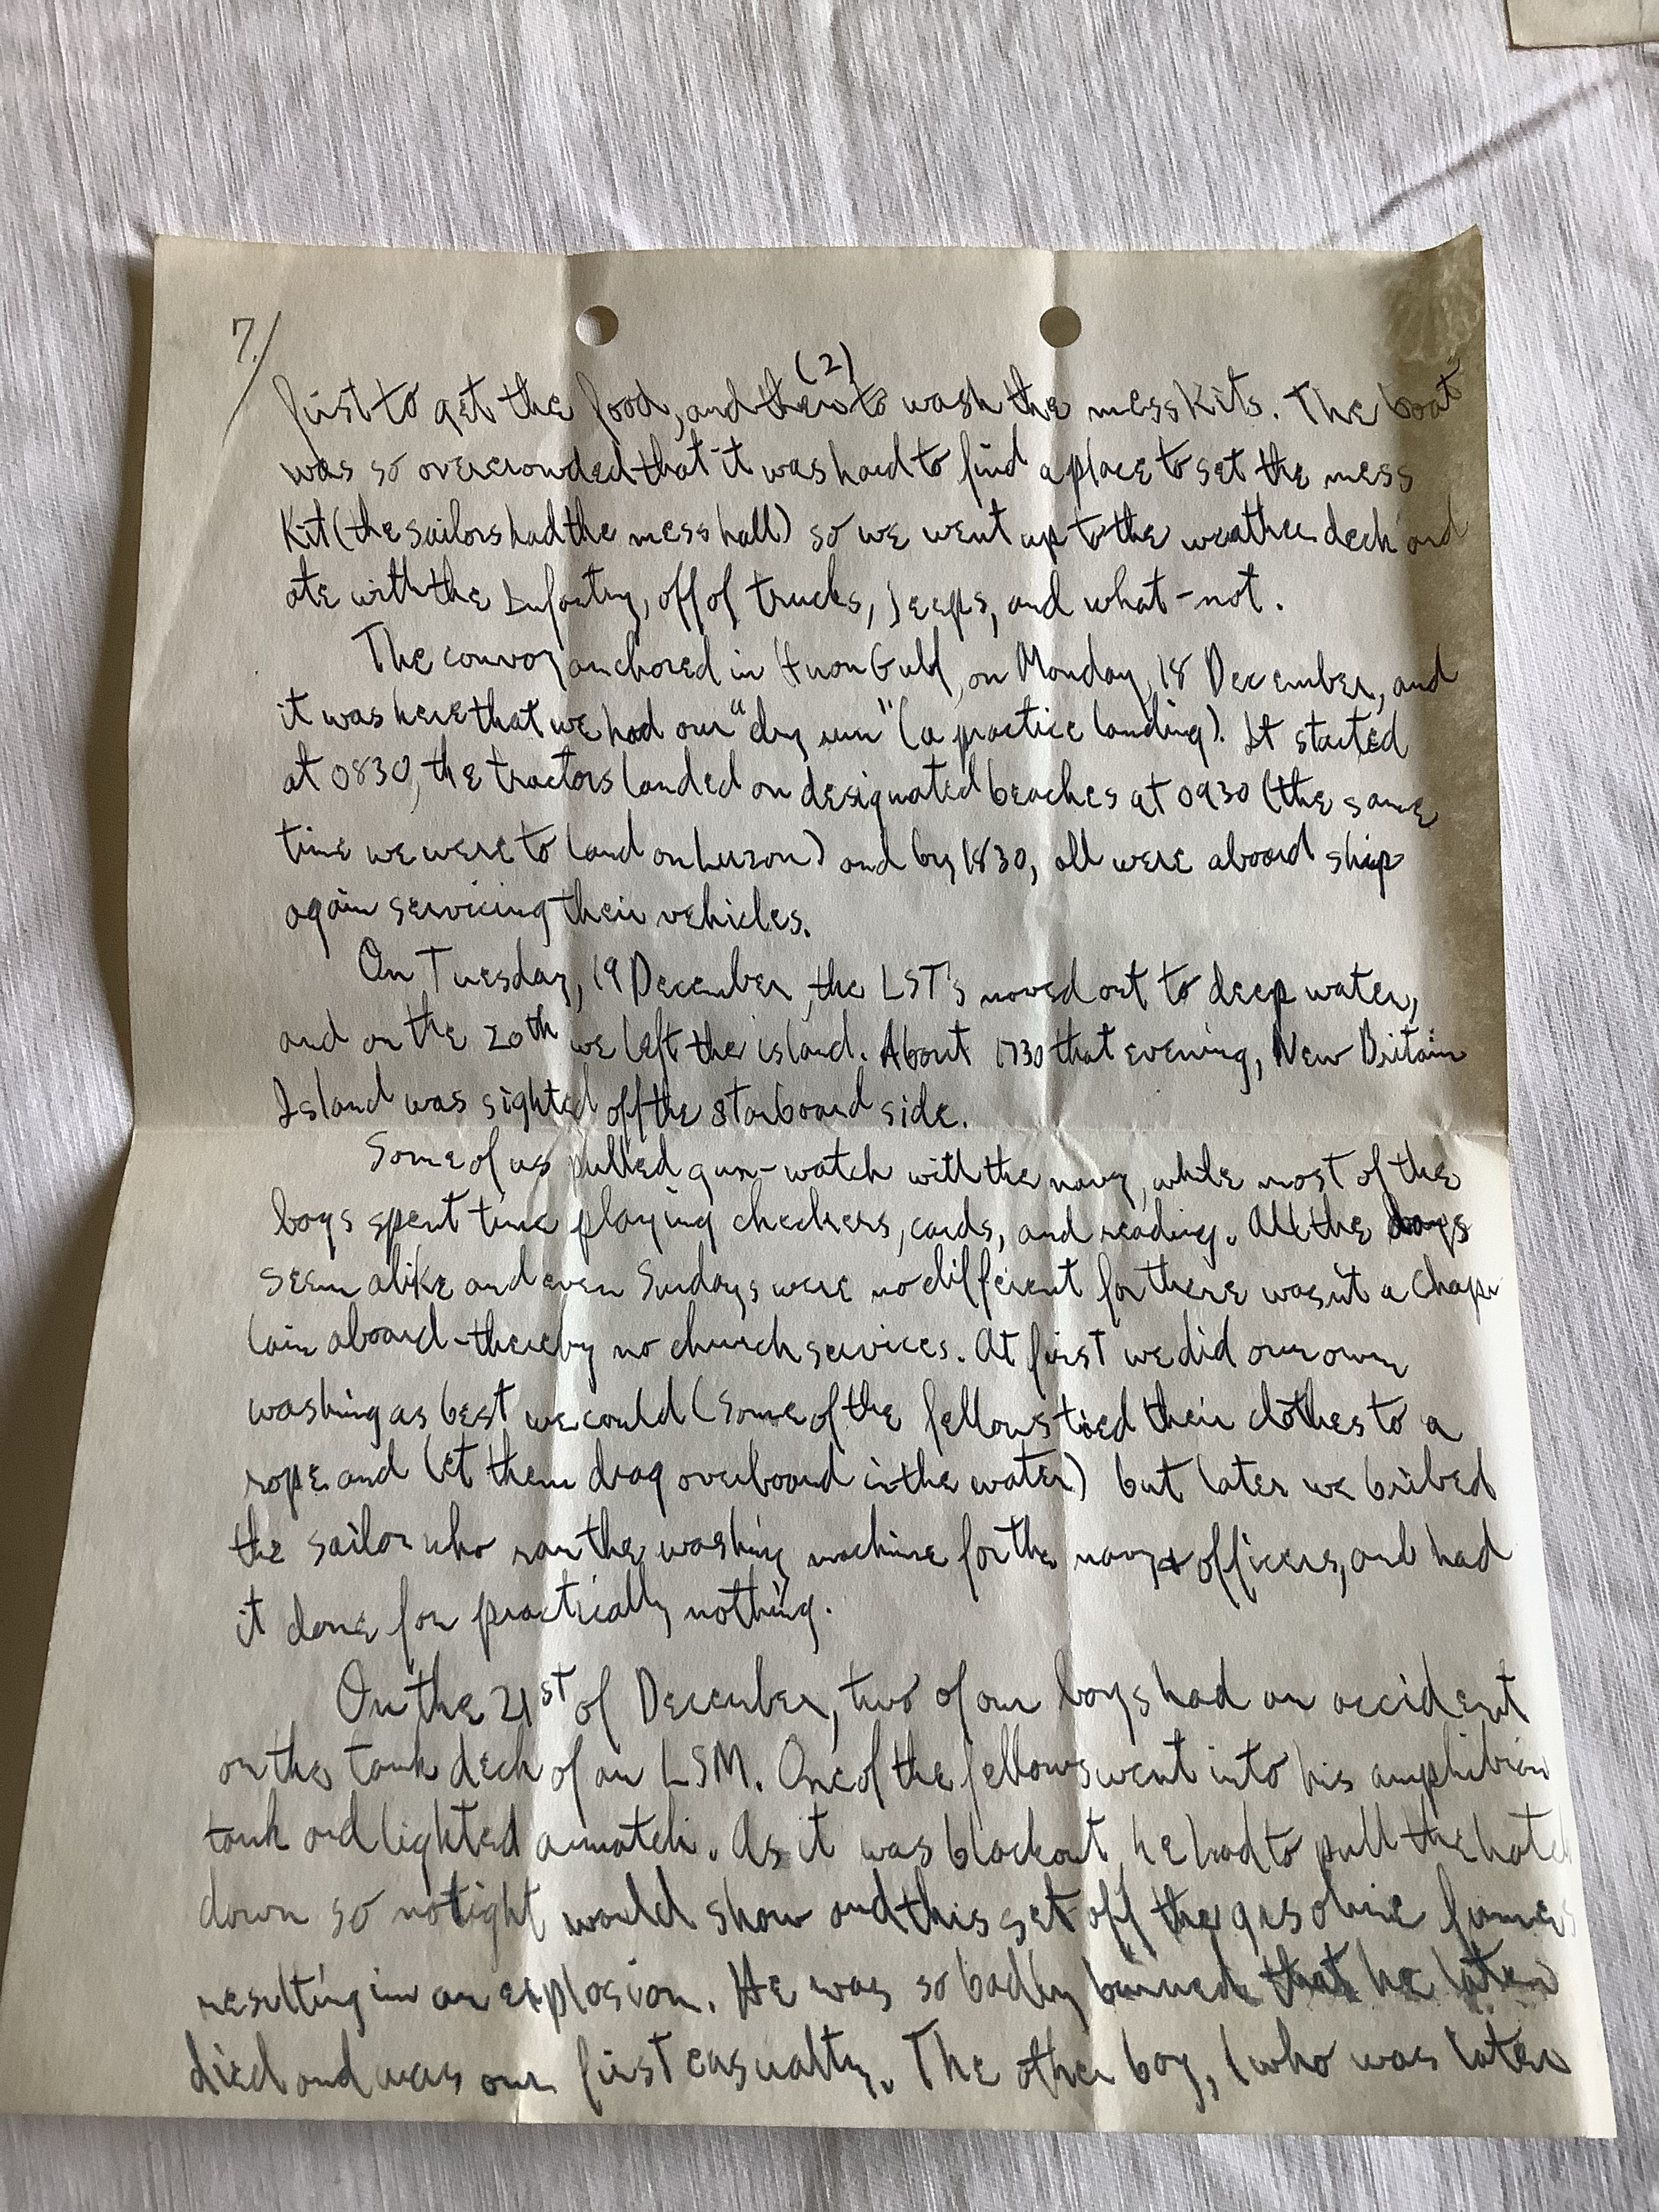 7./
(2)
first to get the food, and then to wash the mess kits. The boat
was so overcrowded that it was hard to find a place to set the mess
kit (the sailors had the mess hall) so we went up to the weather deck and
ate with the Infantry, off of trucks, jeeps, and what-not.
The convoy anchored in Huon Gulf, on Monday, 18 December, and
it was here that we had our "dry run" (a practice landing). It started
at 0830, the tractors landed on designated beaches at 0930 (the same
time we were to land on Luzon) and by 1830, all were aboard ship
again servicing their vehicles.
On Tuesday, 19 December, the LST's moved out to deep water,
and on the 20th we left the island. About 1730 that evening, New Britain
Island was sighted off the starboard side.
Some of us pulled gun-watch with the navy, while most of the
boys spent time playing checkers, cards, and reading. All the days
seem alike and even Sundays were no different for there wasn't a Chap-
lain aboard - thereby no church services. At first we did our own
washing as best we could (some of the fellows tied their clothes to a
rope and let them drag overboard in the water) but later we bribed
the sailor who ran the washing machine for the navy officers, and had
it done for practically nothing.
On the 21st of December, two of our boys had an accident
on the tank deck of an LSM. One of the fellows went into his amphibian
tank and lighted a match. As it was blackout, he had to pull the hatch
down so no light would show and this set off the gasoline fumes
resulting in an explosion. He was so badly burned that he later
died and was our first casualty. The other boy, (who was later